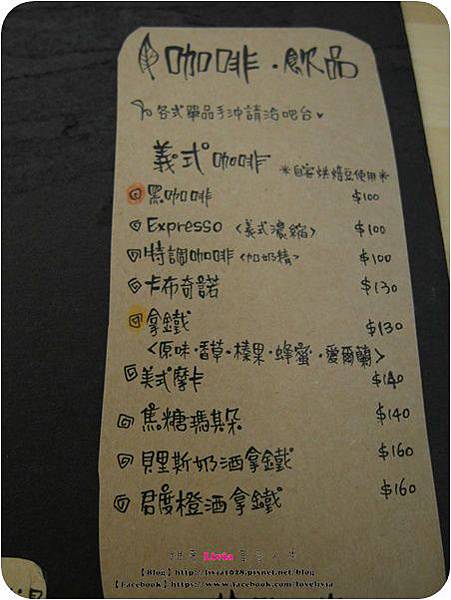 咖啡．飲品
各式單品手沖請洽吧台
義式咖啡 *自家烘焙豆使用*
黑咖啡 $100
Expresso <義式濃縮> $100
特調咖啡<加奶精> $100
卡布奇諾 $130
拿鐵 $130
<原味·香草·榛果·蜂蜜·愛爾蘭>
美式摩卡 $140
焦糖瑪其朵 $140
貝里斯奶酒拿鐵 $160
君度橙酒拿鐵 $160
Livia
【Blog】http://livia1028.pixnet.net/blog
【Facebook】https://www.facebook.com/lovelivia